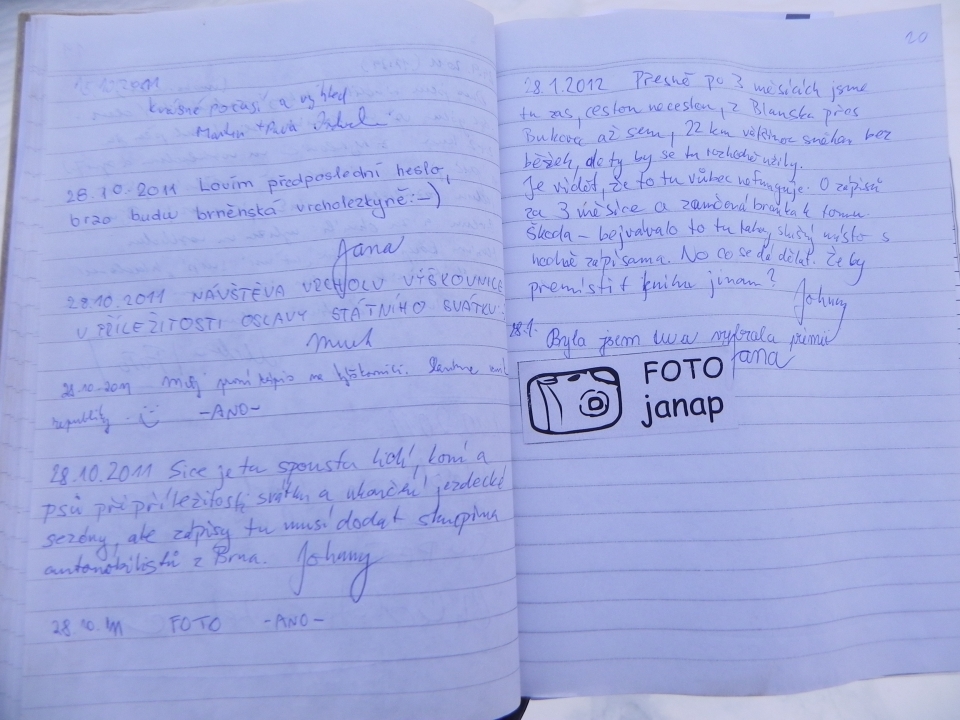 2011
Krásné počasí a výhled
Martin + Pavla
28.10.2011 Lovím předposlední heslo,
brzo budu brněnská vrcholezkyně :-)
Jana
28.10.2011 NÁVŠTĚVA VRCHOLU VÝŠKOVNICE
U PŘÍLEŽITOSTI OSLAVY STÁTNÍHO SVÁTKU.
28.10.2011 Můj první zápis na
republiky. -ANO-
28.10.2011 Sice je tu spousta lidí, koní a
psů při příležitosti svátku a ukončení jezdecké
sezóny, ale zápisy tu musí dodat skupina
automobilistů z Brna. Johnny
28.10. FOTO -ANO-
20
28.1.2012 Přesně po 3 měsících jsme
tu zas, cestou necestou, z Blanska přes
Bukovou až sem, 22 km většinou sněhem bez
běžek, do ty by se tu rozhodně užily.
Je vidět, že to tu vůbec nefunguje. 0 zápisů
za 3 měsíce a zamčená branka k tomu.
Škoda - bejvávalo to tu taky slušný místo s
hodně zápisama. No co se dá dělat. Že by
přemístit knihu jinam?
Johnny
28.1. Byla jsem tu a vybrala
Jana
FOTO
janap